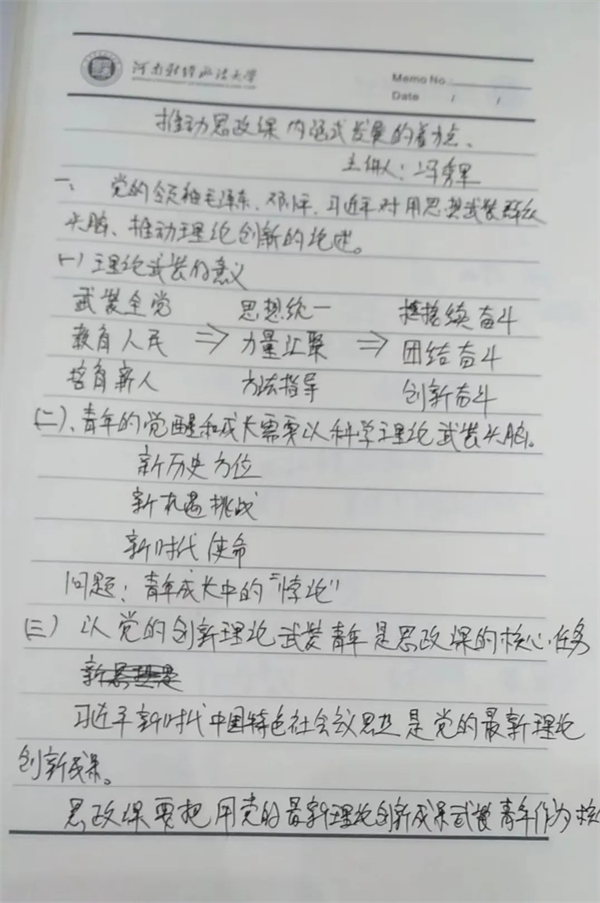 河南财经政法大学
Memo No.
Date / /
推动思政课内涵式发展的着力点、
主讲人：冯秀军
一、党的领袖毛泽东、邓小平、习近平对用思想武装群众
头脑、推动理论创新的论述。
(一) 理论武装的意义
武装全党 思想统一 接续奋斗
教育人民 ⇒ 力量汇聚 ⇒ 团结奋斗
培育新人 方法指导 创新奋斗
(二)、青年的觉醒和成长需要以科学理论武装头脑。
新历史方位
新机遇挑战
新时代使命
问题：青年成长中的“悖论”
(三) 以党的创新理论武装青年是思政课的核心任务
习近平新时代中国特色社会主义思想是党的最新理论
创新成果。
思政课要把用党的最新理论创新成果武装青年作为核